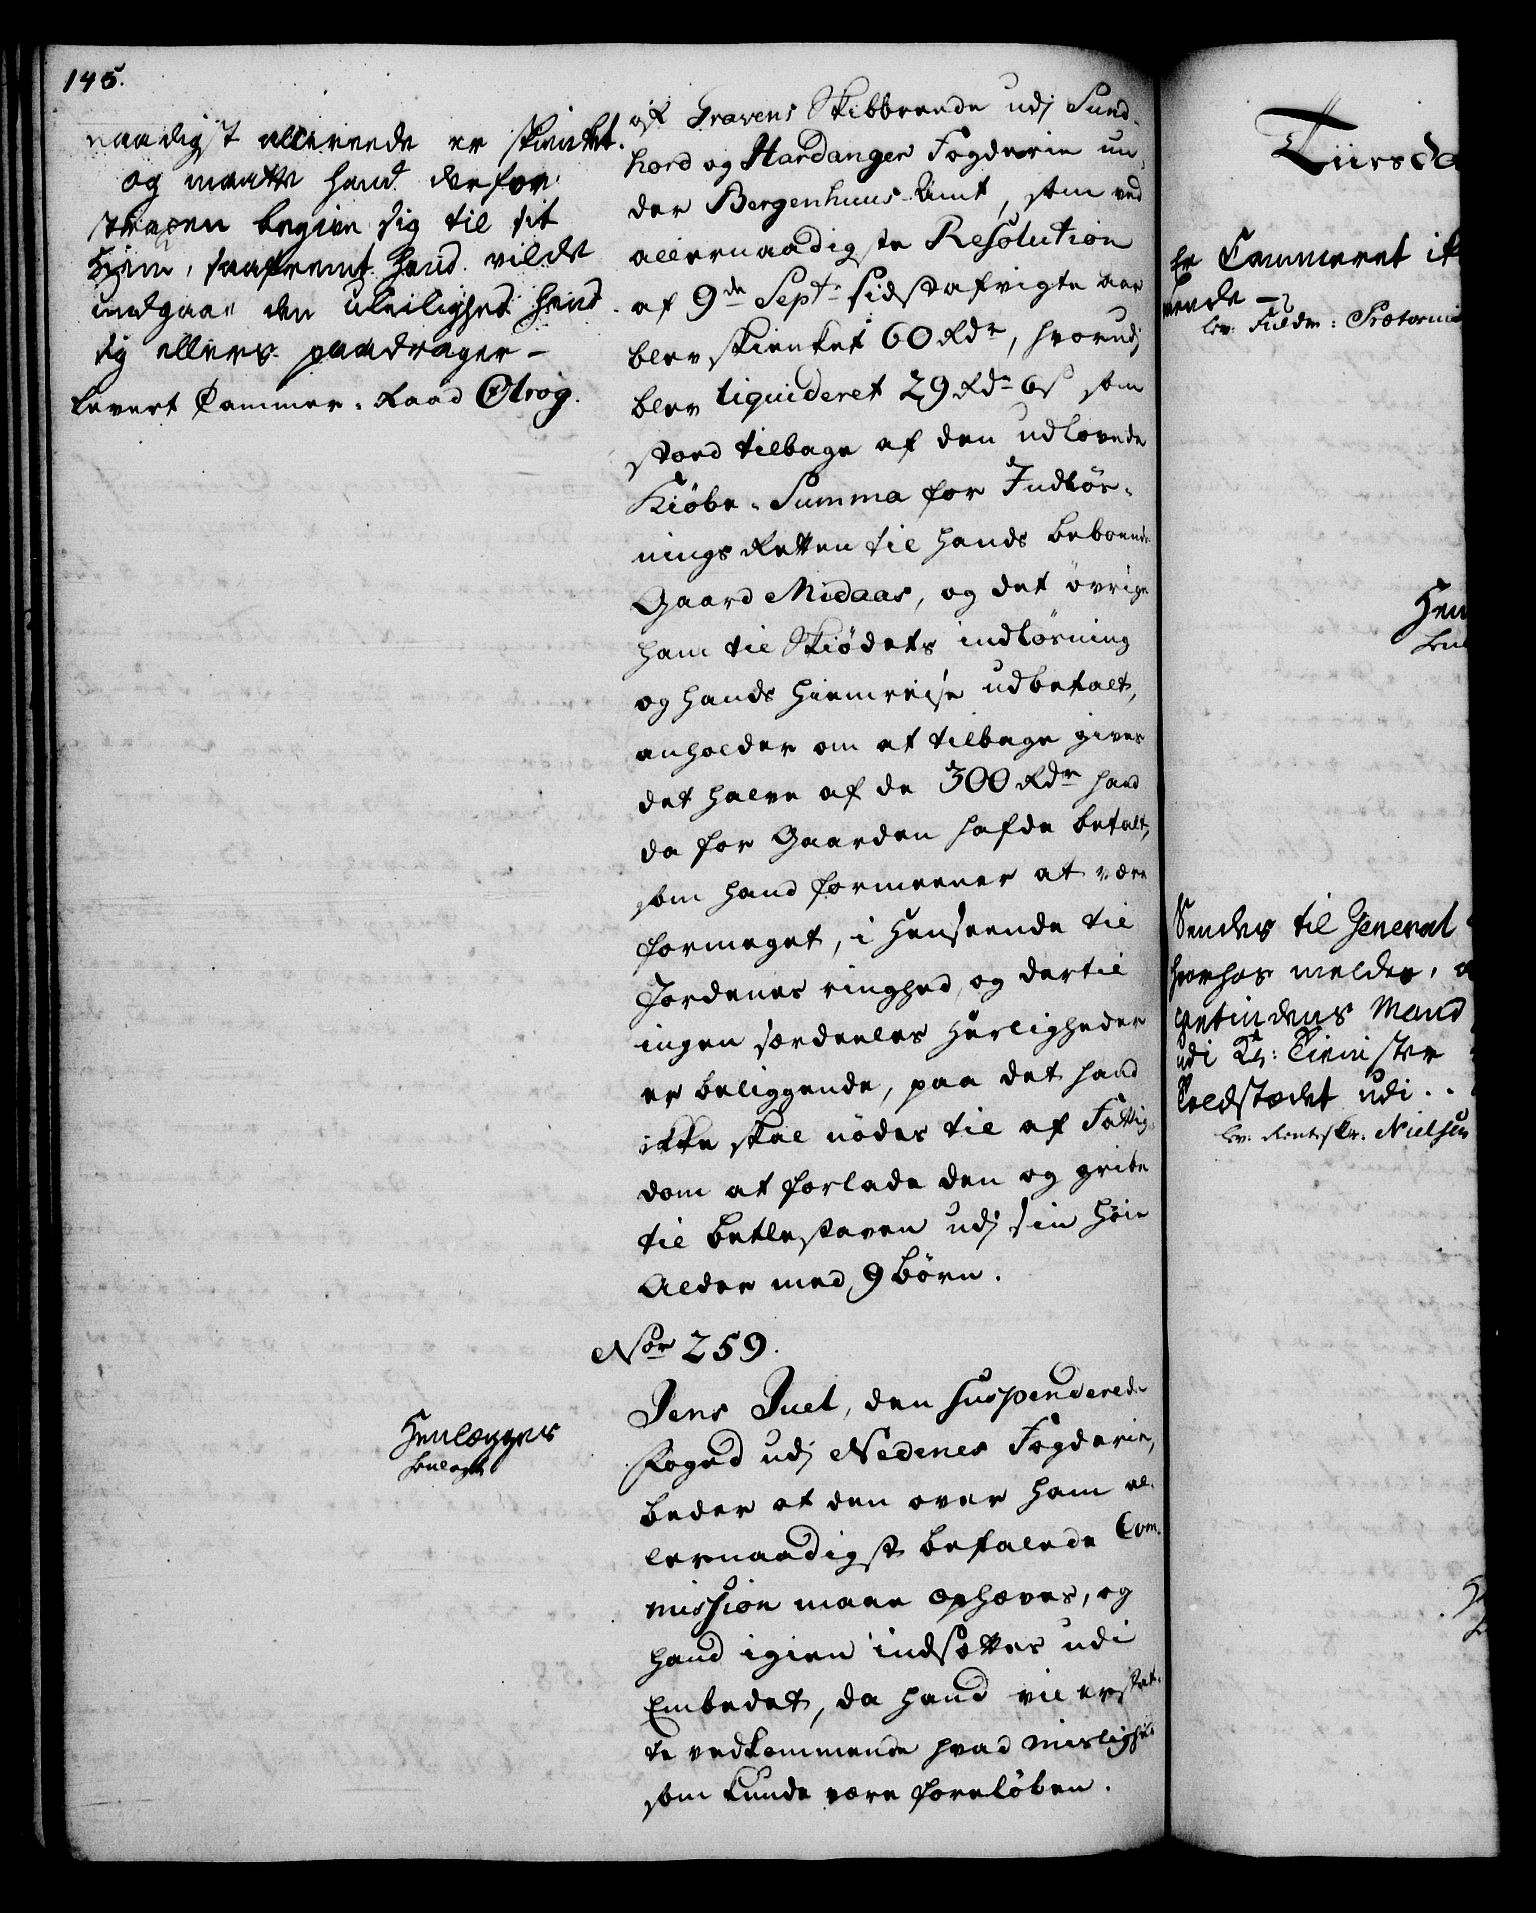 145.
naadigst allereede er skienket.
og maatte hand derfor
straxen begive sig til sit
Hiem, saafremt hand vilde
undgaae den uleilighed hand
sig ellers paadrager –
Levert Cammer-Raad Olrog.
af Gravens Skibbrende udj Sund-
hord og Hardanger Fogderie un-
der Bergenhuus-Amt, som ved
allernaadigste Resolution
af 9de Septr sidstafvigte aar
blev skienket 60 Rdr, hvorudj
blev liquideret 29 Rdr 6 s som
stoed tilbage af den udlovede
Kiöbe-Summa for Indlös-
nings Retten til hands beboende
Gaard Midaas, og det övrige
ham til Skiödets indlösning
og hands Hiemreise udbetalt,
anholder om at tilbage gives
det halve af de 300 Rdr hand
da for Gaarden hafde betalt,
som hand formeener at være
formeget, i Henseende til
Jordenes ringhed, og dertil
ingen særdeeles Herligheder
er beliggende, paa det hand
ikke skal nödes til af Fattig-
dom at forlade den og gribe
til betlestaven udj sin høie
Alder med 9 börn.
Nor 259.
Jens Juel, den suspenderede
Foged udj Nedenes Fogderie,
beder at den over ham al-
lernaadigst befalede Com-
mission maae ophæves, og
hand igien indsættes udi
Embedet, da hand vil erstat-
te vedkommende hvad mislighed
som kunde være foreløben.
Henlægges
henlagt
Tiirsda
Er Cammeret ik
rende –
lev: Fuldm: Prætoriu
Hen
henl
Sendes til General
hvorhos meldes,
getindens Mand
udi Kg: Tieniste
Toldstædet udi
lev: Rentskr: Nielsen